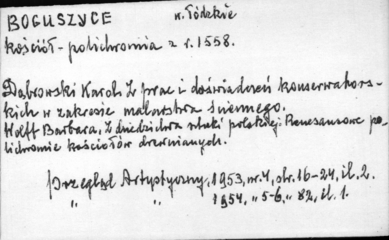 BOGUSZYCE w. łódzkie
kościół - polichromia z r. 1558.
Dąbrowski Karol. Z prac i doświadczeń konserwators-
kich w zakresie malarstwa ściennego.
Wolff Barbara, Z dziedzictwa sztuki polskiej. Renesansowe po-
lichromie kościołów drewnianych.
Przegląd Artystyczny, 1953, nr. 4, str. 16-24, il. 2.
" " 1954, " 5-6, " 82, il. 1.